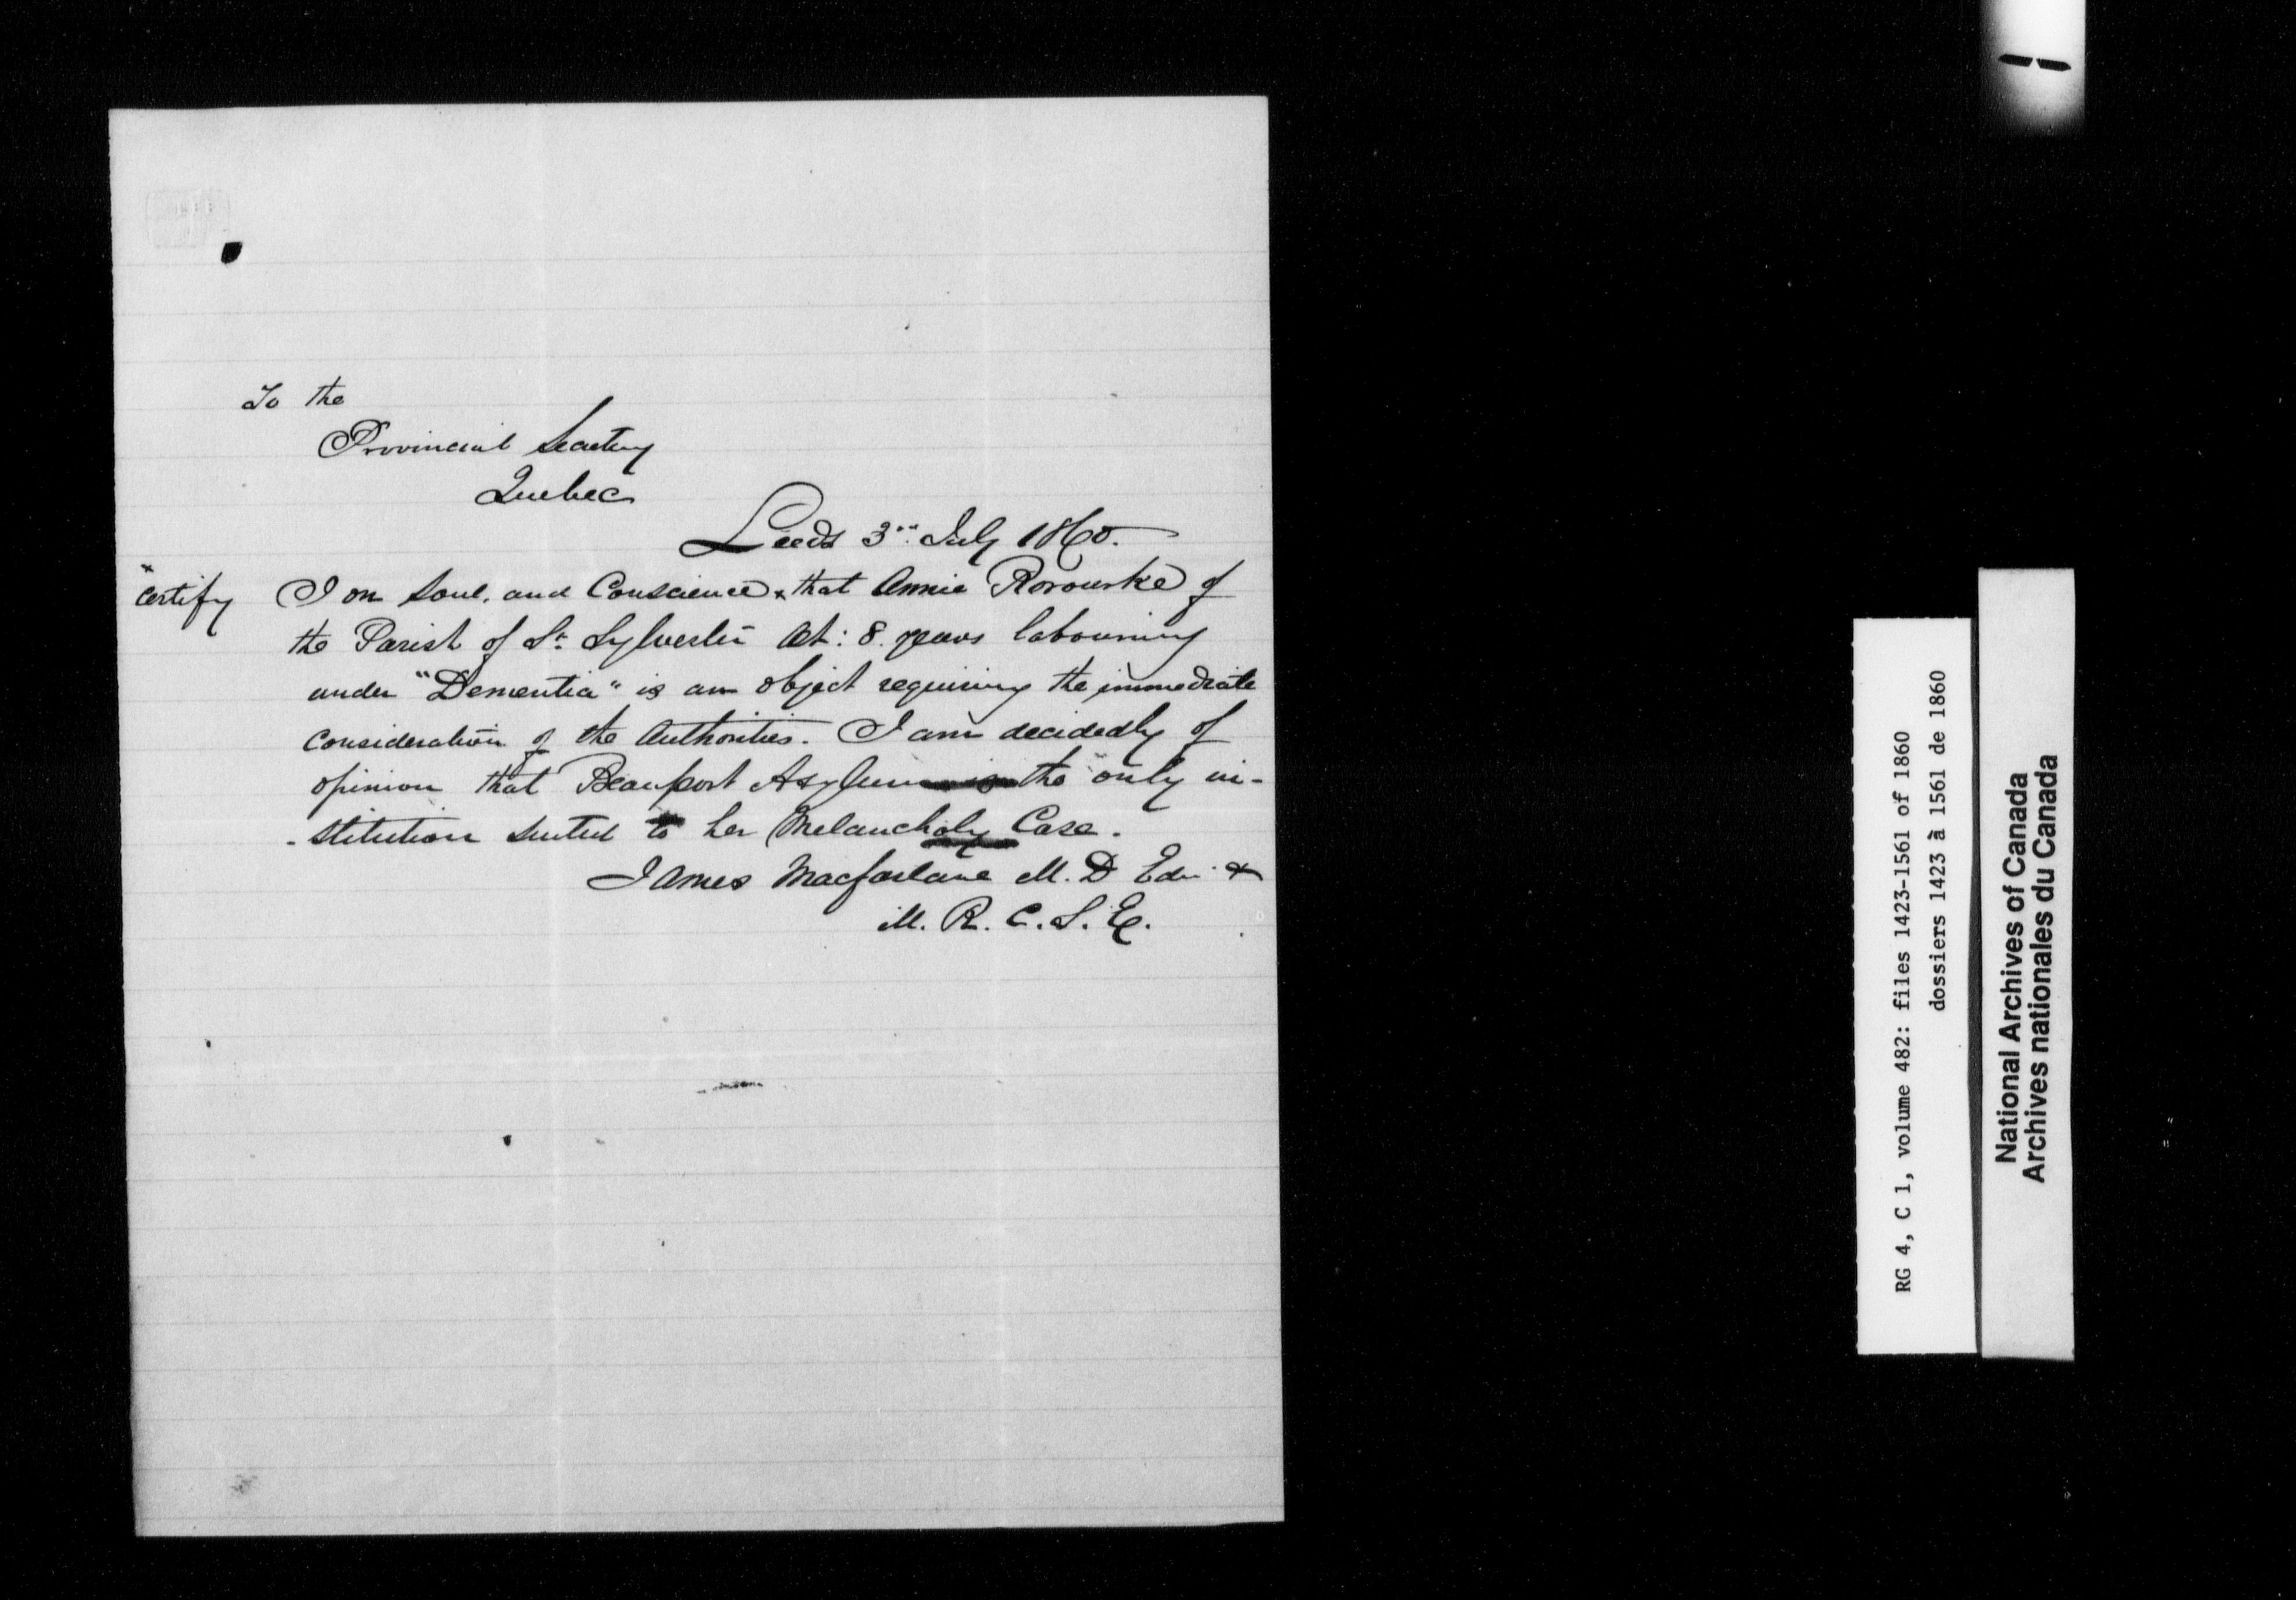 To the
Provincial Secretary
Quebec
Leeds 3rd July 1860.
x certify I on Soul, and Conscience x that Annie Rorourke of
the Parish of St. Sylvester Aet: 8. years labouring
under "Dementia" is an object requiring the immediate
consideration of the Authorities. I am decidedly of
opinion that Beauport Asylum is the only in-
-stitution suited to her Melancholy Case.
James Macfarlane M.D Edin &
M. R. C. S. E.
RG 4, C 1, volume 482: files 1423-1561 of 1860
dossiers 1423 à 1561 de 1860
National Archives of Canada
Archives nationales du Canada